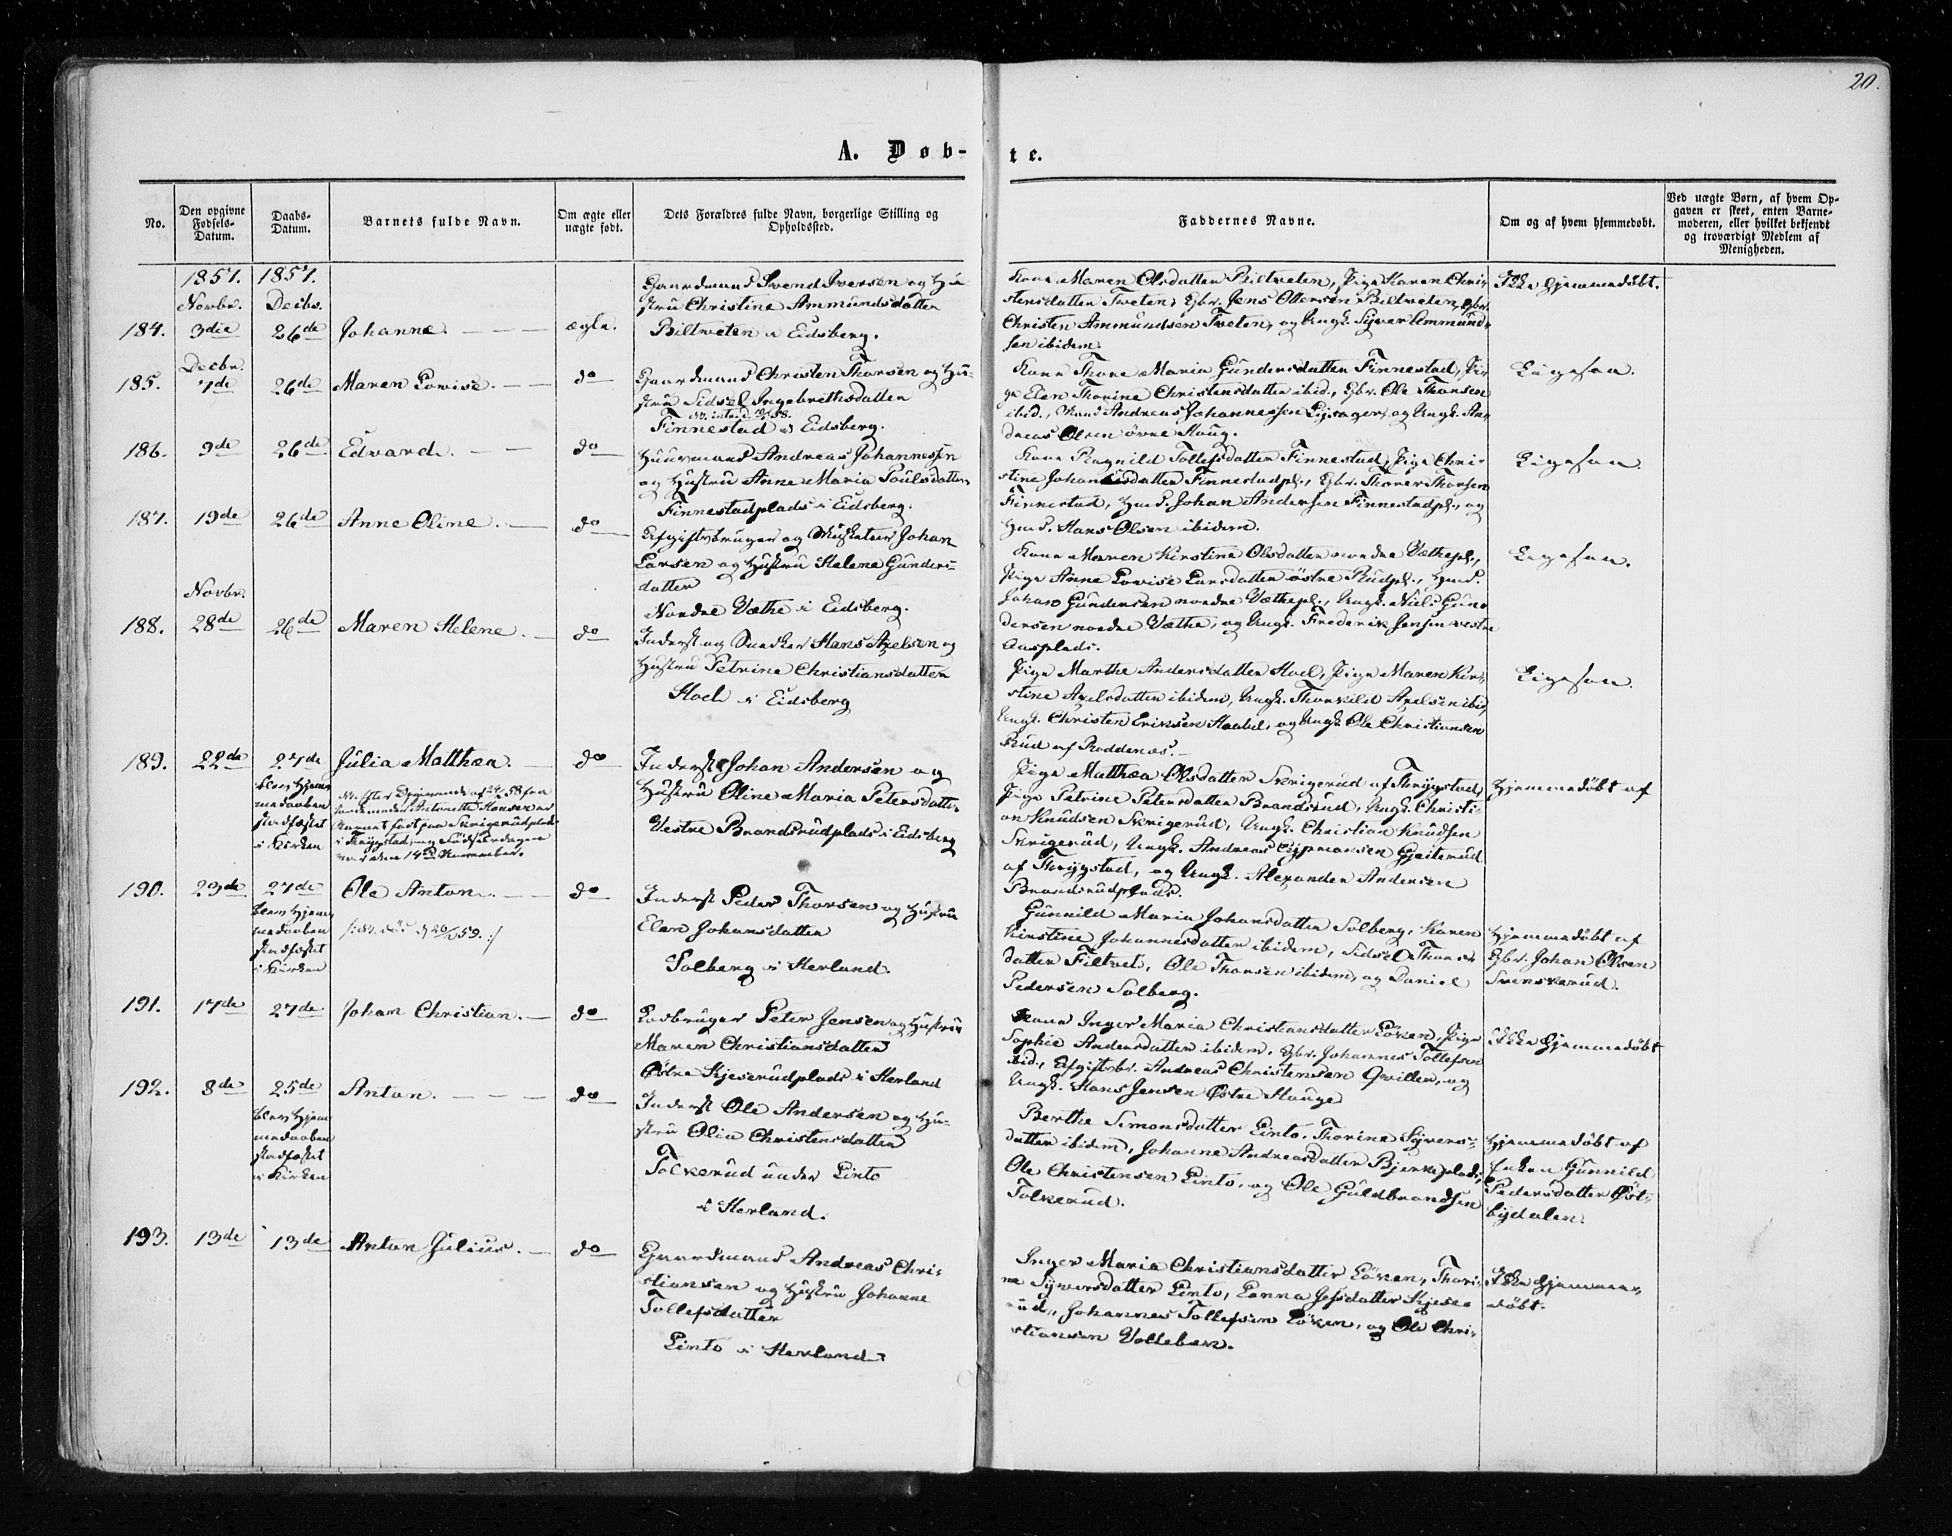 20.
A. Døb-
te.
No.
Den opgivne Fødsels-Datum.
Daabs-Datum.
Barnets fulde Navn.
Om ægte eller uægte født.
Dets Forældres fulde Navn, borgerlige Stilling og Opholdssted.
Faddernes Navne.
Om og af hvem hjemmedøbt.
Ved uægte Børn, af hvem Opgaven er skeet, enten Barnemoderen, eller hvilket bekjendt og troværdigt Medlem af Menigheden.
1857. 1857.
Novbr. Decbr.
184. 3die 26de Johanne. ægte.
Gaardmand Svend Iversen og Hu-
stru Christine Ammundsdatter
Biltveten i Eidsberg.
Kone Maren Olsdatter Biltveten, Pige Karen Chri-
stensdatter Tveten, Gbr. Jens Ottersen Biltveten, Gbr.
Christen Ammundsen Tveten, og Ungk. Syver Ammund-
sen ibidem.
Ikke hjemmedøbt.
Decbr.
185. 7de 26de Maren Lovise. do
Gaardmand Christen Thorsen og Hu-
stru Sidsel Ingebrethsdatter
Finnestad i Eidsberg.
Kone Thore Maria Gundersdatter Finnestad, Pi-
ge Elen Thorine Christensdatter ibid., Gbr. Ole Thorsen
ibid., Mand Andreas Johannessen, og Ungk. An-
dreas Olsen øvre Haug.
Ligesaa.
186. 9de 26de Edvard. do
Huusmand Andreas Johannesen
og Hustru Anne Maria Poulsdatter
Finnestadplads i Eidsberg.
Kone Ragnild Tollefsdatter Finnestad, Pige Chri-
stine Johannesdatter Finnestadpl., Gbr. Thorer Thorsen
Finnestad, Hmd. Johan Andersen Finnestadpl., og
Hmd. Hans Olsen ibidem.
Ligesaa.
187. 19de 26de Anne Oline. do
Afgiftsbruger og Musketeer Johan
Larsen og Hustru Helene Gunders-
datter
Nordre Væthe i Eidsberg.
Kone Maren Kirstine Olsdatter nordre Væthepl.,
Pige Anne Lovise Larsdatter østre Rudpl., Hmd.
Johan Gundersen nordre Væthepl., Ungk. Niels Gun-
dersen nordre Væthe, og Ungk. Frederik Jensen vestre
Aasplads.
Ligesaa.
Novbr.
188. 28de 26de Maren Helene. do
Inderst og Snedker Hans Axelsen og
Hustru Petrine Christiansdatter
Hoel i Eidsberg
Pige Marthe Andersdatter Hoel, Pige Maren Kir-
stine Axelsdatter ibidem, Ungk. Thorkild Axelsen ibid,
Ungk. Christen Eriksen, og Ungk. Ole Christiansen
Rud af Roddenæs.
Ligesaa.
189. 22de 27de Julia Matthea. do
blev Hjem-
medaaben
stadfæstet
i Kirken
Barnet født paa Skrigerudplads
i Thrygstad, og Fødselsdagen
den 14de November.
Inderst Johan Andersen og
Hustru Oline Maria Petersdatter
Vestre Brandsrudplads i Eidsberg
Pige Matthea Olsdatter Skrigerud af Thrygstad,
Pige Petrine Petersdatter Brandsrud, Ungk. Christi-
an Knudsen Skrigerud, Ungk. Christian Knudsen
Skrigerud, Ungk. Andreas Cypriansen Gjeiterud
af Thrygstad, og Ungk. Alexander Andersen
Brandsrudplads.
Hjemmedøbt af
190. 23de 27de Ole Anton. do
blev Hjem-
medaaben
stadfæstet
i Kirken
Inderst Peder Thorsen og Hustru
Elen Johansdatter
Solberg i Herland.
Gunnild Maria Johansdatter Solberg, Karen
Kirstine Johannesdatter ibidem, Sidsel Thors-
datter Filtvet, Ole Thorsen ibidem, og Daniel
Pedersen Solberg.
Hjemmedøbt af
Gbr. Johan Olsen
Svenskerud.
191. 17de 27de Johan Christian. do
Lodbruger Peter Jensen og Hustru
Maren Christiansdatter
Østre Kjeserudplads i Herland
Kone Inger Maria Christiansdatter Løken, Pige
Sophie Andersdatter ibidem, Gbr. Johannes Tollefsen
ibid, Afgiftsbr. Andreas Christensen Qvillen, og
Ungk. Hans Jensen Østre Hauge
Ikke hjemmedøbt
192. 8de 25de Anton. do
blev Hjem-
medaaben
stadfæstet
i Kirken
Inderst Ole Andersen og Hu-
stru Olia Christensdatter
Tolkerud under Linto
i Herland.
Berthe Simonsdatter Linto, Thorine Syvers-
datter ibidem, Johanne Andreasdatter Bjerkeplads,
Ole Christensen Linto, og Ole Guldbrandsen
Tolkerud.
Hjemmedøbt af
Enken Gunnild
Pedersdatter Øst-
bydalen.
193. 13de 13de Anton Julius. do
Gaardmand Andreas Chri-
stiansen og Hustru Johanne
Tollefsdatter
Linto i Herland
Inger Maria Christiansdatter Løken, Thori-
ne Syversdatter Linto, Jensdatter Kjese-
rud, Johannes Tollefsen Løken, og Ole Chri-
stiansen Volleben.
Ikke hjemme-
døbt.